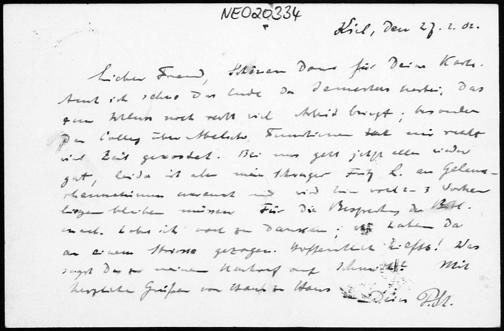 NEO20334
Kiel, den 27.2.02.
Lieber Freund, Schönen Dank für Deine Karte.
ich schon das Ende des Semesters herbei, das
zum Schluss noch recht viel Arbeit bringt; besonders
das Colleg über Abelsche Funktionen hat mir recht
viel Zeit gekostet. Bei uns geht jetzt alles wieder
gut, leider ist aber mein Schwager Fritz L. an Gelenk-
rheumatismus erkrankt und wird wohl 2-3 Wochen
liegen bleiben müssen. Für die Besprechung der
habe ich noch zu danken; haben da
an einem Strange gezogen. Hoffentlich hilfts! Was
sagst Du zu meinem Nachruf auf Mit
herzlichen Grüßen von Haus zu Haus Dein P. St.